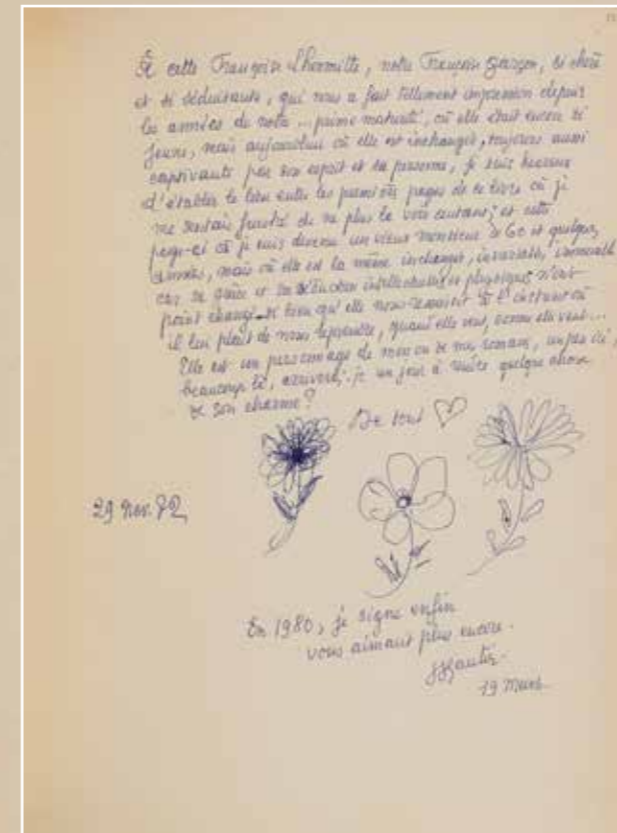 À cette Françoise Lhermitte, notre Françoise Garçon, si chère
et si séduisante, qui nous a fait tellement impression depuis
les années de notre ... prime maturité, où elle était encore si
jeune, mais aujourd'hui où elle est inchangée, toujours aussi
captivante par son esprit et sa personne, je suis heureux
d'établir le lien entre les premières pages de ce livre où je
me sentais frustré de ne plus la voir autant, et cette
page-ci où je suis devenu un vieux monsieur de 60 et quelques
années, mais où elle est la même inchangée, invariable,
car sa grâce et sa séduction intellectuelle et physique n'ont
point changé si bien qu'elle nous à l'instant où
il lui plaît de nous reprendre, quand elle veut, comme elle veut ...
Elle est un personnage de mon ou de mes romans, un peu ici,
beaucoup là, arriverai-je un jour à quelque chose
de son charme ?
De tout
29 Nov. 72
En 1980, je signe enfin
vous aimant plus encore.
JJGautier
19 Mars